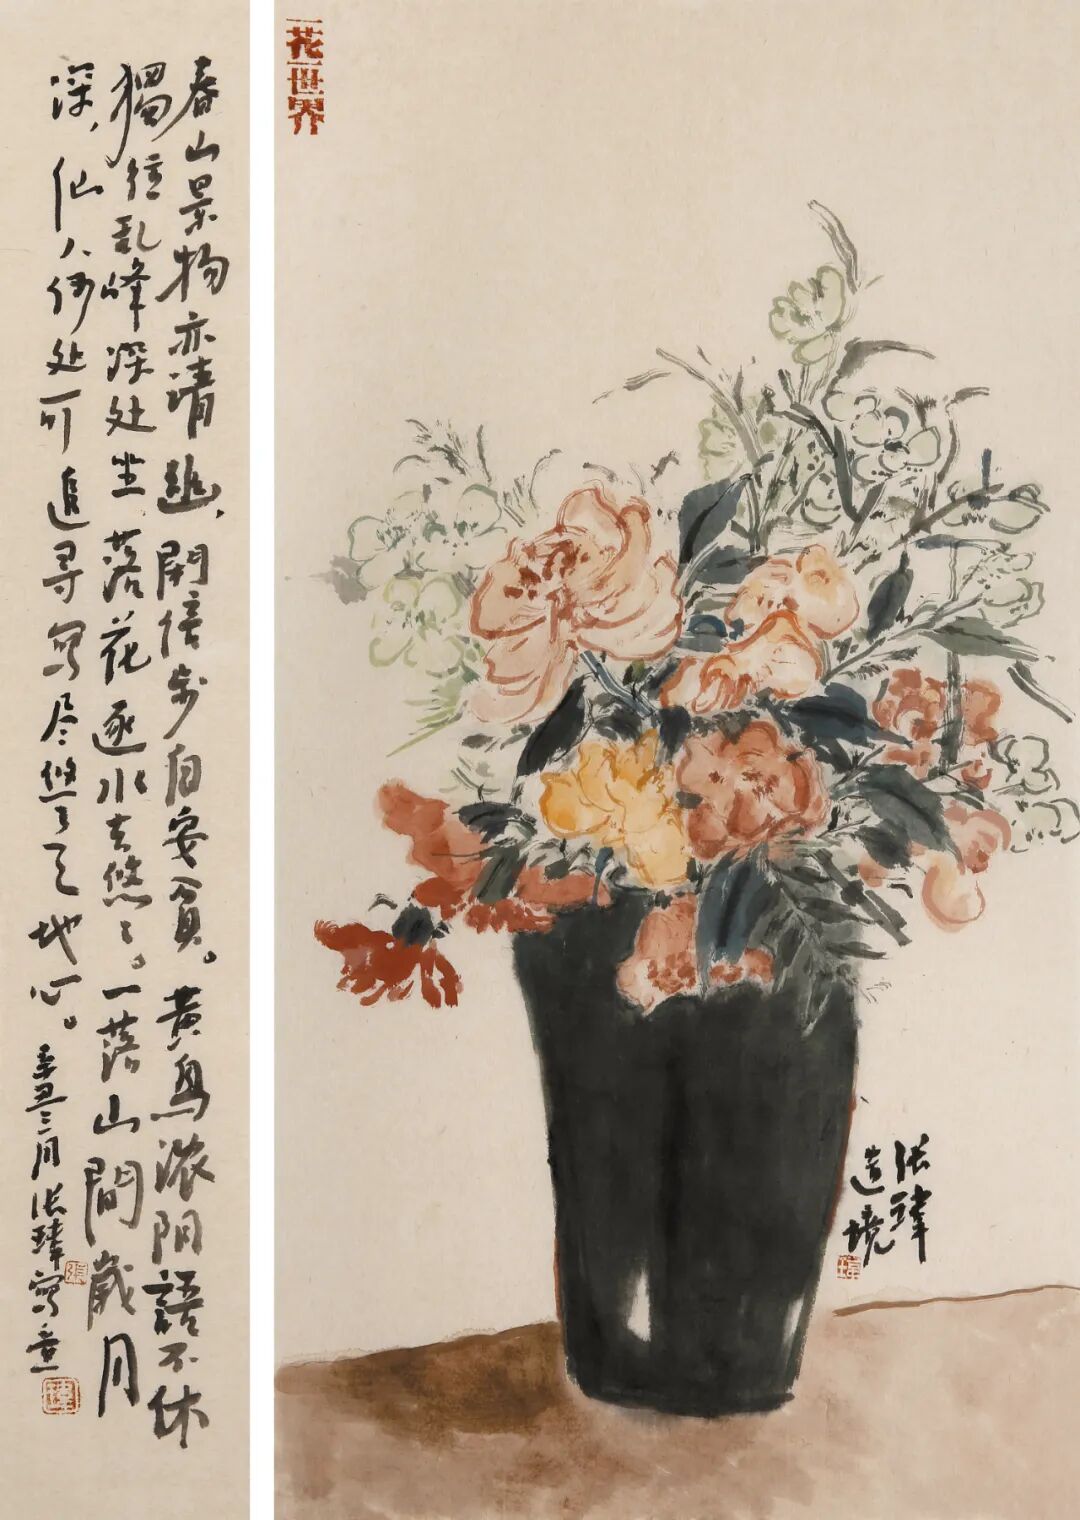 春山景物亦清幽，閑信步自安貧。黄鸟浓阴語不休
獨往乱峰深处坐落花逐水去悠々。一落山間歲月
深，仙人何处可追寻写尽悠々天地心。
辛丑三月张瑋寫意
張
瑋
一花一世界
张瑋
造境
瑋